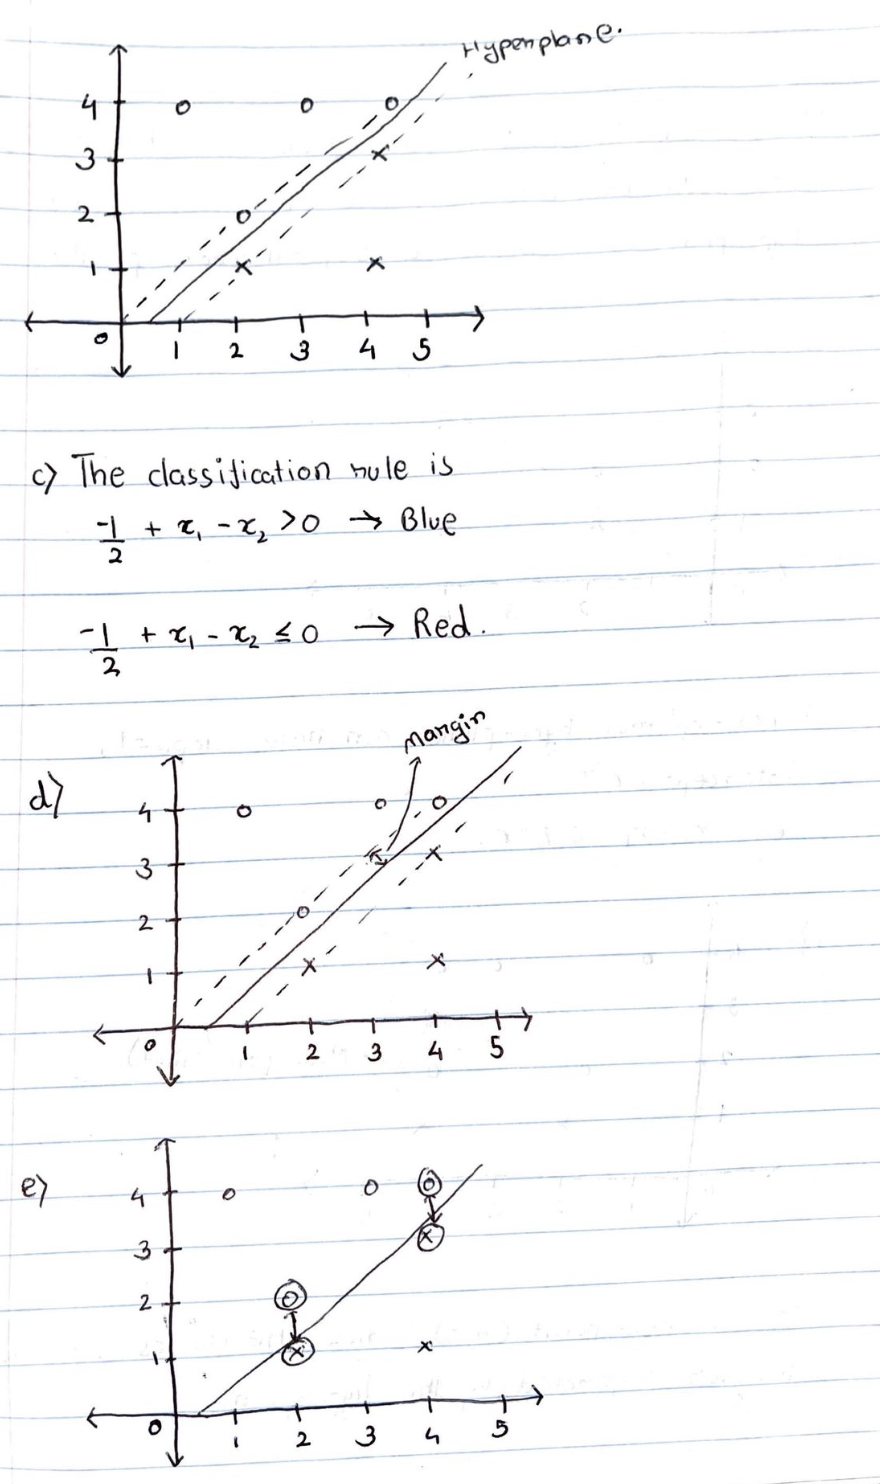 Hyperplane.
4
3
2
1
0
1 2 3 4 5
c) The classification rule is
-1/2 + x₁ - x₂ > 0 → Blue
-1/2 + x₁ - x₂ ≤ 0 → Red.
Margin
d)
4
3
2
1
0
1 2 3 4 5
e)
4
3
2
1
0
1 2 3 4 5